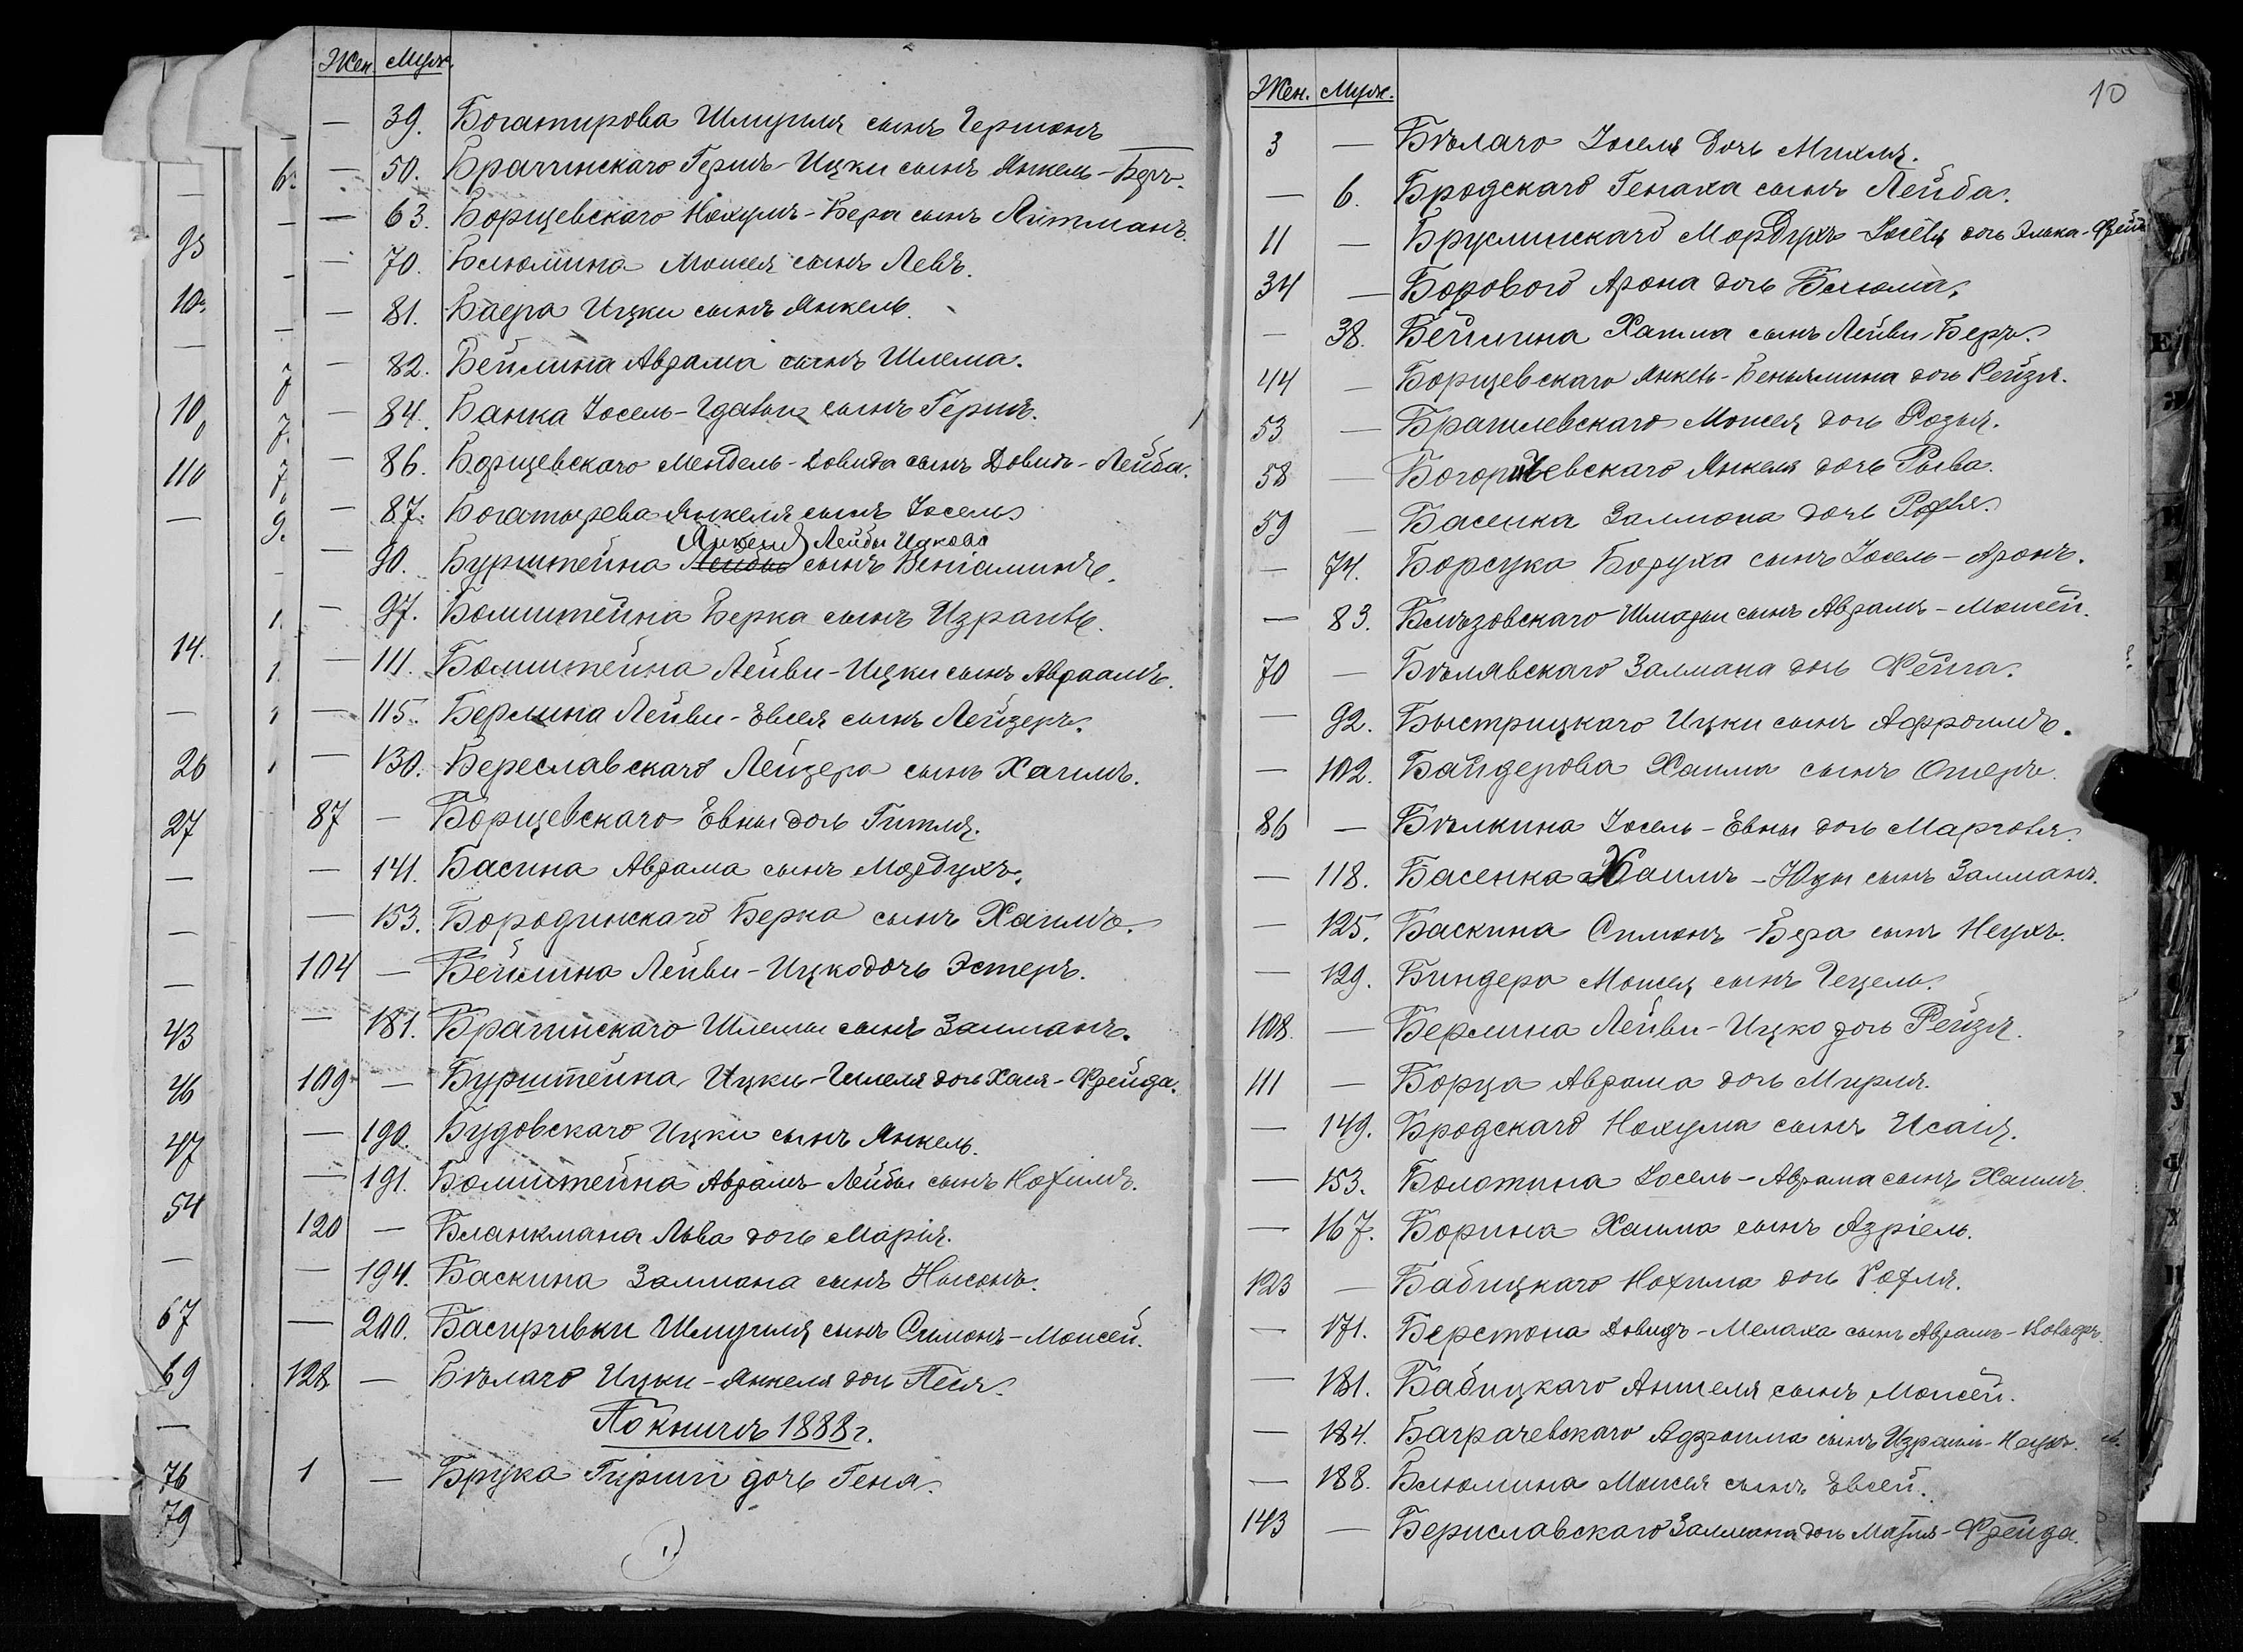 Жен. Муж.
— 39. Богатирова Шмуиля сынъ Гершонъ
— 50. Брагинскаго Гершъ-Ицки сынъ Янкель-Беръ.
— 63. Борщевскаго Нохумъ-Бера сынъ Литманъ.
— 70. Блюмина Моисея сынъ Левъ.
— 81. Баера Ицки сынъ Янкель.
— 82. Бейлина Аврама сынъ Шлема.
— 84. Банка Іосель- сынъ Гершъ.
— 86. Борщевскаго Мендель-Довида сынъ Довидъ-Лейба.
— 87. Богатырева Янкеля сынъ Іосель
Янкеля Лейбы Ицкова
— 90. Бурштейна Лейбы сынъ Веніаминъ.
— 97. Бомштейна Берка сынъ Израиль.
— 111. Бомштейна Лейви-Ицки сынъ Авраамъ.
— 115. Берлина Лейви-Евсея сынъ Лейзеръ.
— 130. Береславскаго Лейзера сынъ Хаимъ.
87 — Борщевскаго Евны дочь Гитля.
— 141. Басина Аврама сынъ Мордухъ.
— 153. Бородинскаго Берка сынъ Хаимъ.
104 — Бейлина Лейви-Ицко дочь Эстеръ.
— 181. Брагинскаго Шлемы сынъ Залманъ.
109 — Бурштейна Ицки-Гилеля дочь Хася-Фрейда.
— 190. Будовскаго Ицки сынъ Янкель.
— 191. Бомштейна Аврамъ-Лейбы сынъ Нохимъ.
120 — Бланкмана Льва дочь Марія.
— 194. Баскина Залмана сынъ Нисонъ.
— 200. Басиривки Шмуиля сынъ Симонъ-Моисей.
128 — Бѣлаго Ицки-Янкеля дочь Песя.
По книгѣ 1888 г.
1 — Брука Гирши дочь Геня.
10
Жен. Муж.
3 — Бѣлаго Іоселя дочь Михля.
— 6. Бродскаго Генаха сынъ Лейба.
11 — Бруслинскаго Мордухъ-Іоселя дочь Элька-Фрейд
34 — Борового Арона дочь Блюма.
— 38. Бейлина Хаима сынъ Лейви-Беръ.
44 — Борщевскаго Янкель-Беньямина дочь Рейзя.
53 — Брагилевскаго Моисея дочь Розыя.
58 — Янкеля дочь Рыва.
59 — Басенка Залмона дочь Рохля.
— 74. Борсука Боруха сынъ Іосель-Аронъ.
— 83. Шмарьи сынъ Аврамъ-Моисей.
70 — Бѣлявскаго Залмана дочь Фейга.
— 92. Быстрицкаго Ицки сынъ Афроимъ.
— 102. Байдерова Хаима сынъ Ошеръ.
86 — Бѣлкина Іосель-Евны дочь Марголя.
— 118. Басенка Хаимъ-Юды сынъ Залманъ.
— 125. Баскина Симонъ-Бера сынъ Неухъ.
— 129. Биндера Моисея сынъ Гецель.
108. — Берлина Лейви-Ицко дочь Рейзя.
111 — Борца Аврама дочь Мирля.
— 149. Бродскаго Нохума сынъ Исаія.
— 153. Болотина Іосель-Аврама сынъ Хаимъ.
— 167. Борина Хаима сынъ Азріель.
123 — Бабицкаго Нохима дочь Рохля.
— 171. Берстона Довидъ-Мелаха сынъ Аврамъ-
— 181. Бабицкаго Аншеля сынъ Моисей.
— 184. Баграчевскаго Афроима сынъ Израиль-Неухъ.
— 188. Блюмина Моисея сынъ Евсей.
143 — Бериславскаго Залмана дочь Матля-Фрейда.